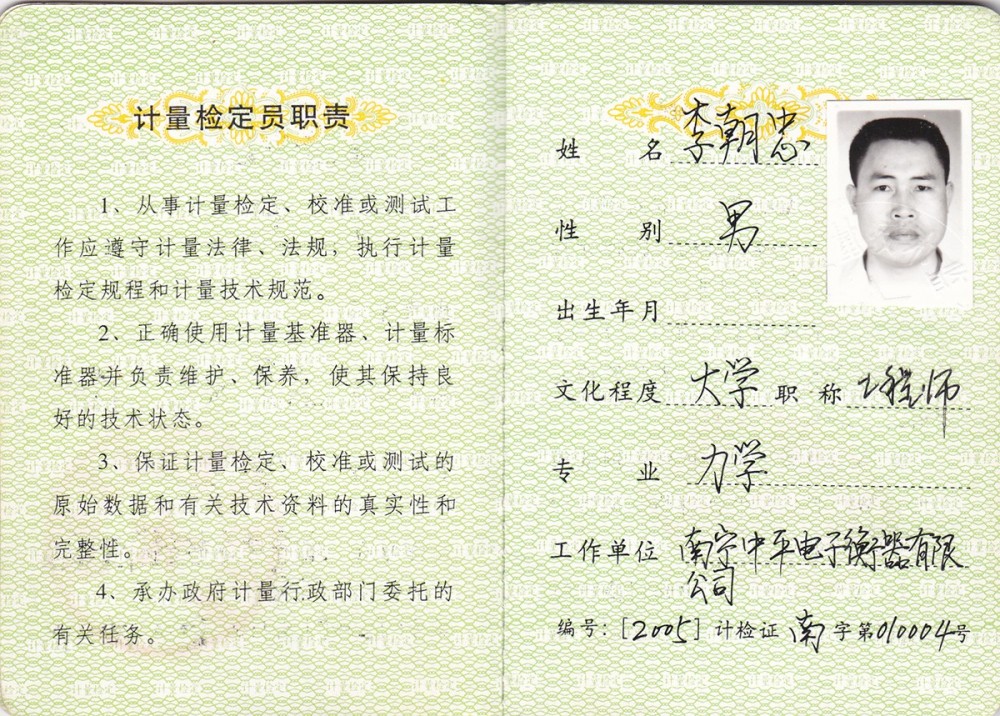 计量检定员职责
1、从事计量检定、校准或测试工
作应遵守计量法律、法规，执行计量
检定规程和计量技术规范。
2、正确使用计量基准器、计量标
准器并负责维护、保养，使其保持良
好的技术状态。
3、保证计量检定、校准或测试的
原始数据和有关技术资料的真实性和
完整性。
4、承办政府计量行政部门委托的
有关任务。
姓 名 李朝忠
性 别 男
出生年月
文化程度 大学 职 称 工程师
专 业 力学
工作单位 南宁中平电子衡器有限
公司
编号：[2005] 计检证 南 字第010004号